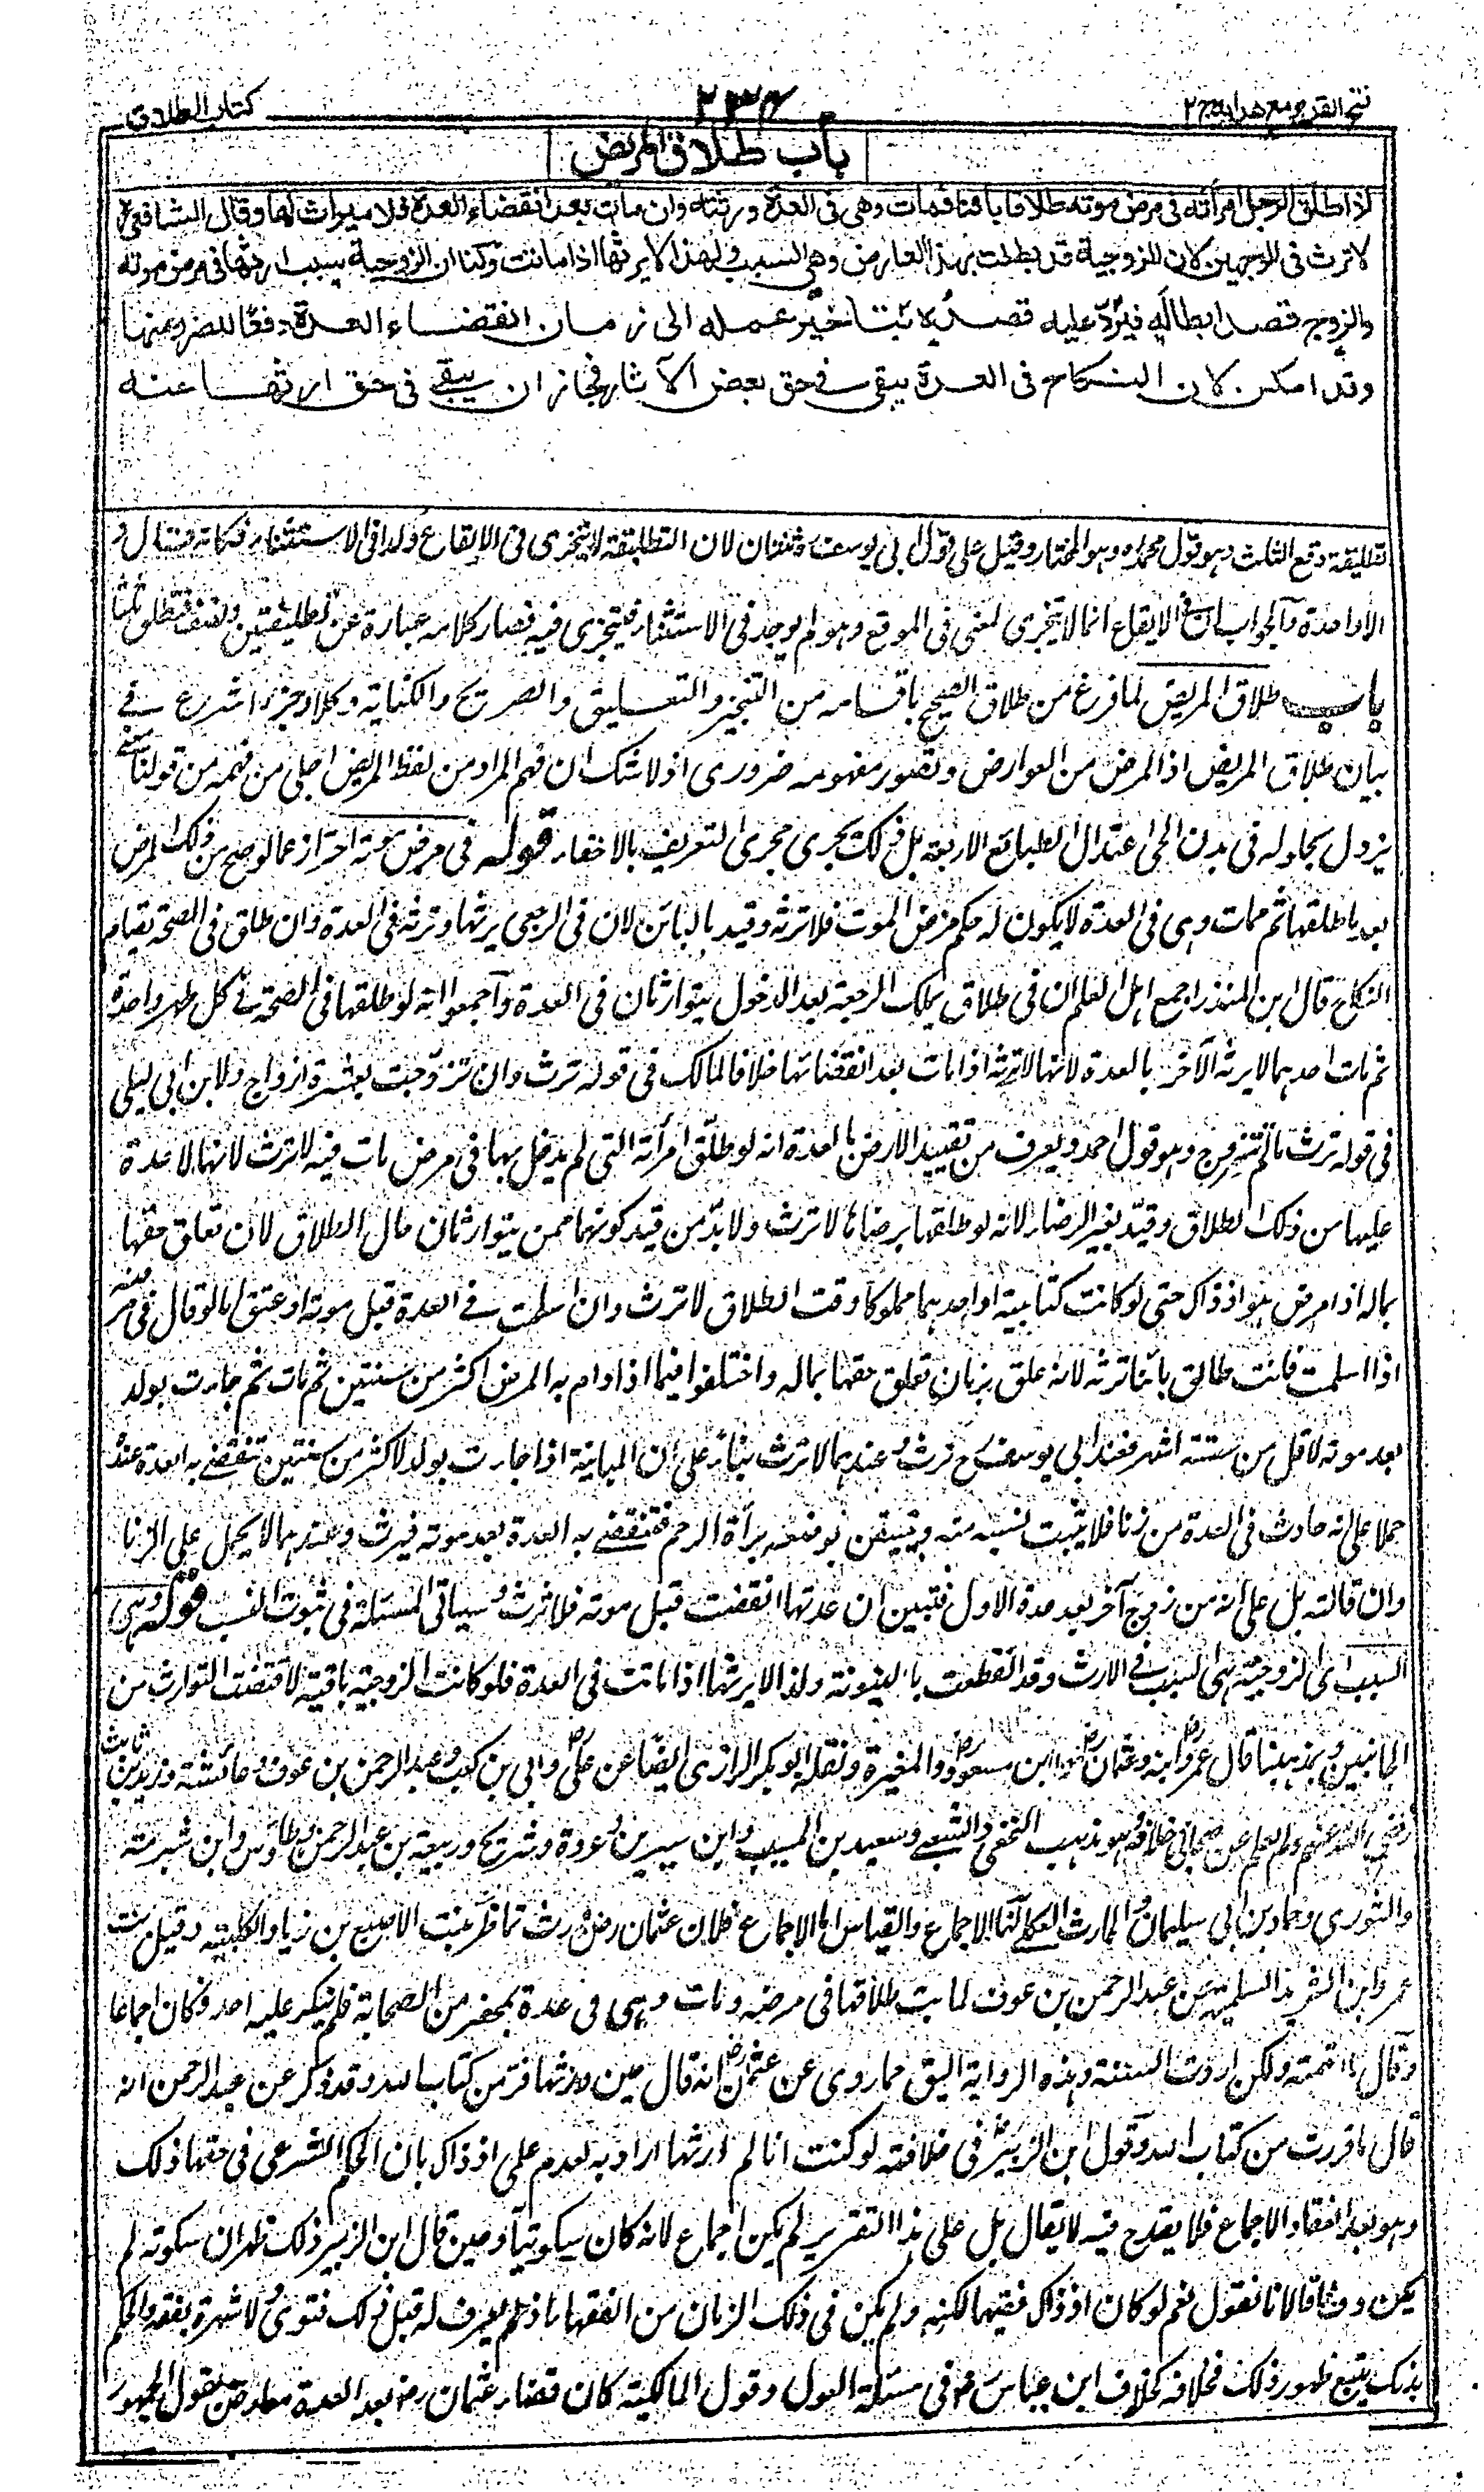 فتح القدير مع هدايه ج ٢
٢٣٤
كتاب الطلاق
باب طلاق المريض
اذا طلق الرجل امرأته فى مرض موته طلاقا بائنا فمات وهى فى العدة ورثته وان مات بعد انقضاء العدة فلا ميراث لها وقال الشافعى
لا ترث فى الوجهين لان الزوجية قد بطلت بهذا العارض وهى السبب ولهذا لا يرثها اذا ماتت ولنا ان الزوجية سبب ارثها فى مرض موته
والزوج قصد ابطاله فيرد عليه قصده بتاخير عمله الى زمان انقضاء العدة دفعا للضرر عنها
وقد امكن لان النكاح فى العدة يبقى فى حق بعض الآثار فجاز ان يبقى فى حق ارثها عنه
تطليقة وقع الثلث وهو قول محمد وهو المختار وقيل على قول ابى يوسف ثنتان لان التطليقة لا تتجزى فى الايقاع وكذا فى الاستثناء فكانه قال
الا واحدة والجواب ان فى الايقاع انما لا يتجزى لمعنى فى الموقع وهو لم يوجد فى الاستثناء فيتجزى فيه فصار كلامه عبارة عن تطليقتين ونصف فتطلق ثلثا
باب طلاق المريض لما فرغ من طلاق الصحيح باقسامه من التنجيز والتعليق والصريح والكناية وكلا وجزءا شرع فى
بيان طلاق المريض اذ المرض من العوارض وتصور مفهومه ضرورى اذ لا شك ان فهم المراد من لفظ المريض اجلى من فهمه من قولنا معنى
يزول بحلوله فى بدن الحى اعتدال الطبايع الاربعة بل ذلك يجرى مجرى التعريف بالاخفاء قوله فى مرض موته احتراز عما لو صح من ذلك المرض
بعد ما طلقها ثم مات وهى فى العدة لا يكون له حكم مرض الموت فلا ترثه وقيد بالبائن لان فى الرجعى يرثها وترثه فى العدة وان طلق فى الصحة لقيام
النكاح قال ابن المنذر اجمع اهل العلم ان فى طلاق يملك الرجعة بعد الدخول يتوارثان فى العدة واجمعوا انه لو طلقها فى الصحة فى كل طهر واحدة
ثم مات احدهما لا يرثه الآخر بالعدة لانها لا ترثه اذا مات بعد انقضائها خلافا لمالك فى قوله ترث وان تزوجت بعشرة ازواج ولابن ابى ليلى
فى قوله ترث ما لم تتزوج وهو قول احمد ويعرف من تقييد الارث بالعدة انه لو طلق امرأته التى لم يدخل بها فى مرض مات فيه لا ترث لانها لا عدة
عليها من ذلك الطلاق وقيد بغير الرضاء لانه لو طلقها برضاها لا ترث ولا بد من قيد كونهما ممن يتوارثان حال الطلاق لان تعلق حقها
بماله اذا مرض هو اذ ذاك حتى لو كانت كتابية او احدهما مملوكا وقت الطلاق لا ترث وان اسلمت فى العدة قبل موته او عتق اما لو قال فى مرضه
اذا اسلمت فانت طالق بائنا ترثه لانه علق بزمان تعلق حقها بماله واختلفوا فيما اذا دام به المرض اكثر من سنتين ثم مات ثم جاءت بولد
بعد موته لاقل من ستة اشهر فعند ابى يوسف ترث وعندهما لا ترث بناء على ان المبانة اذا جاءت بولد لاكثر من سنتين تنقضى به العدة عنده
حملا على انه حادث فى العدة من زنا فلا يثبت نسبه منه ويتيقن بوضعه براءة الرحم فتنقضى به العدة بعد موته فيرث وعندهما لا يحمل على الزنا
وان قالته بل على انه من زوج آخر بعد عدة الاول فتبين ان عدتها انقضت قبل موته فلا ترث وسياتى المسئلة فى ثبوت النسب قوله وهى
السبب اى الزوجية هى السبب فى الارث وقد انقطعت بالبينونة ولذا لا يرثها اذا ماتت فى العدة فلو كانت الزوجية باقية لاقتضت التوارث من
الجانبين وبمذهبنا قال عمر وابنه وعثمان وابن مسعود والمغيرة ونقله ابو بكر الرازى ايضا عن على وابى بن كعب وعبد الرحمن بن عوف وعائشة وزيد بن ثابت
رضى الله عنهم ولم يعلم عن صحابى خلافه وهو مذهب النخعى والشعبى وسعيد بن المسيب وابن سيرين وعروة وشريح وربيعة بن عبد الرحمن وطاؤس وابن شبرمة
والثورى وحماد بن ابى سليمان والحارث العكلى لنا الاجماع والقياس اما الاجماع فلان عثمان رضى ورث تماضر بنت الاصبغ بن زياد الكلبية وقيل بنت
عمرو ابن الشريد السلمية من عبد الرحمن بن عوف لما بت طلاقها فى مرضه ومات وهى فى عدة بمحضر من الصحابة فلم ينكر عليه احد فكان اجماعا
وقال ما اتهمته ولكن اردت السنة وهذه الرواية اليق مما روى عن عثمان انه قال حين ورثها فر من كتاب الله وقد ذكر عن عبد الرحمن انه
قال ما فررت من كتاب الله وقول ابن الزبير فى خلافته لو كنت انا لم اورثها اراد به لعدم على اذ ذاك بان الحكم الشرعى فى حقها ذلك
وهو بعد انعقاد الاجماع فلا يقدح فيه لا يقال بل على هذا التقرير لم يكن اجماع لانه كان سكوتيا وحين قال ابن الزبير ذلك ظهر ان سكوته لم
يكن وفاقا لانا نقول نعم لو كان اذ ذاك فقيها لكنه ولم يكن فى ذلك الزمان من الفقهاء اذ لم يعرف له قبل ذلك فتوى ولا شهرة بفقه والحكم
بذلك يتبع ظهور ذلك فخلافه كخلاف ابن عباس فى مسئلة العول وقول المالكية كان قضاء عثمان رضى بعد العدة معارض بقول الجمهور